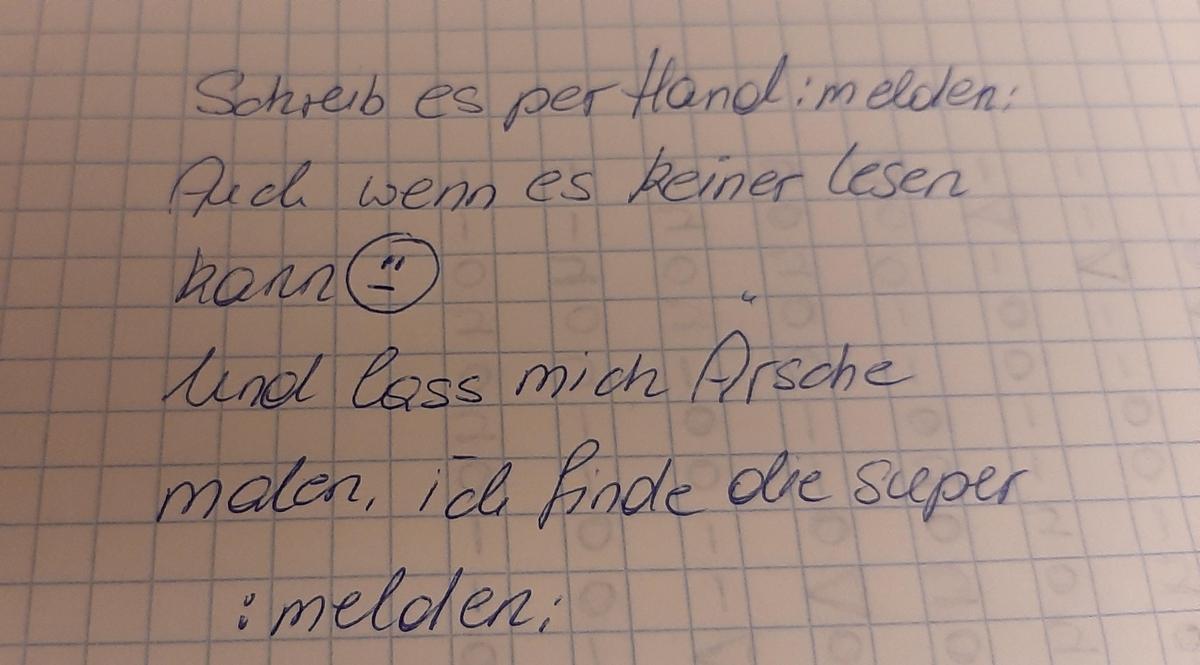 Schreib es per Hand :melden:
Auch wenn es keiner lesen
kann
Und lass mich Ärsche
malen, ich finde die super
:melden: